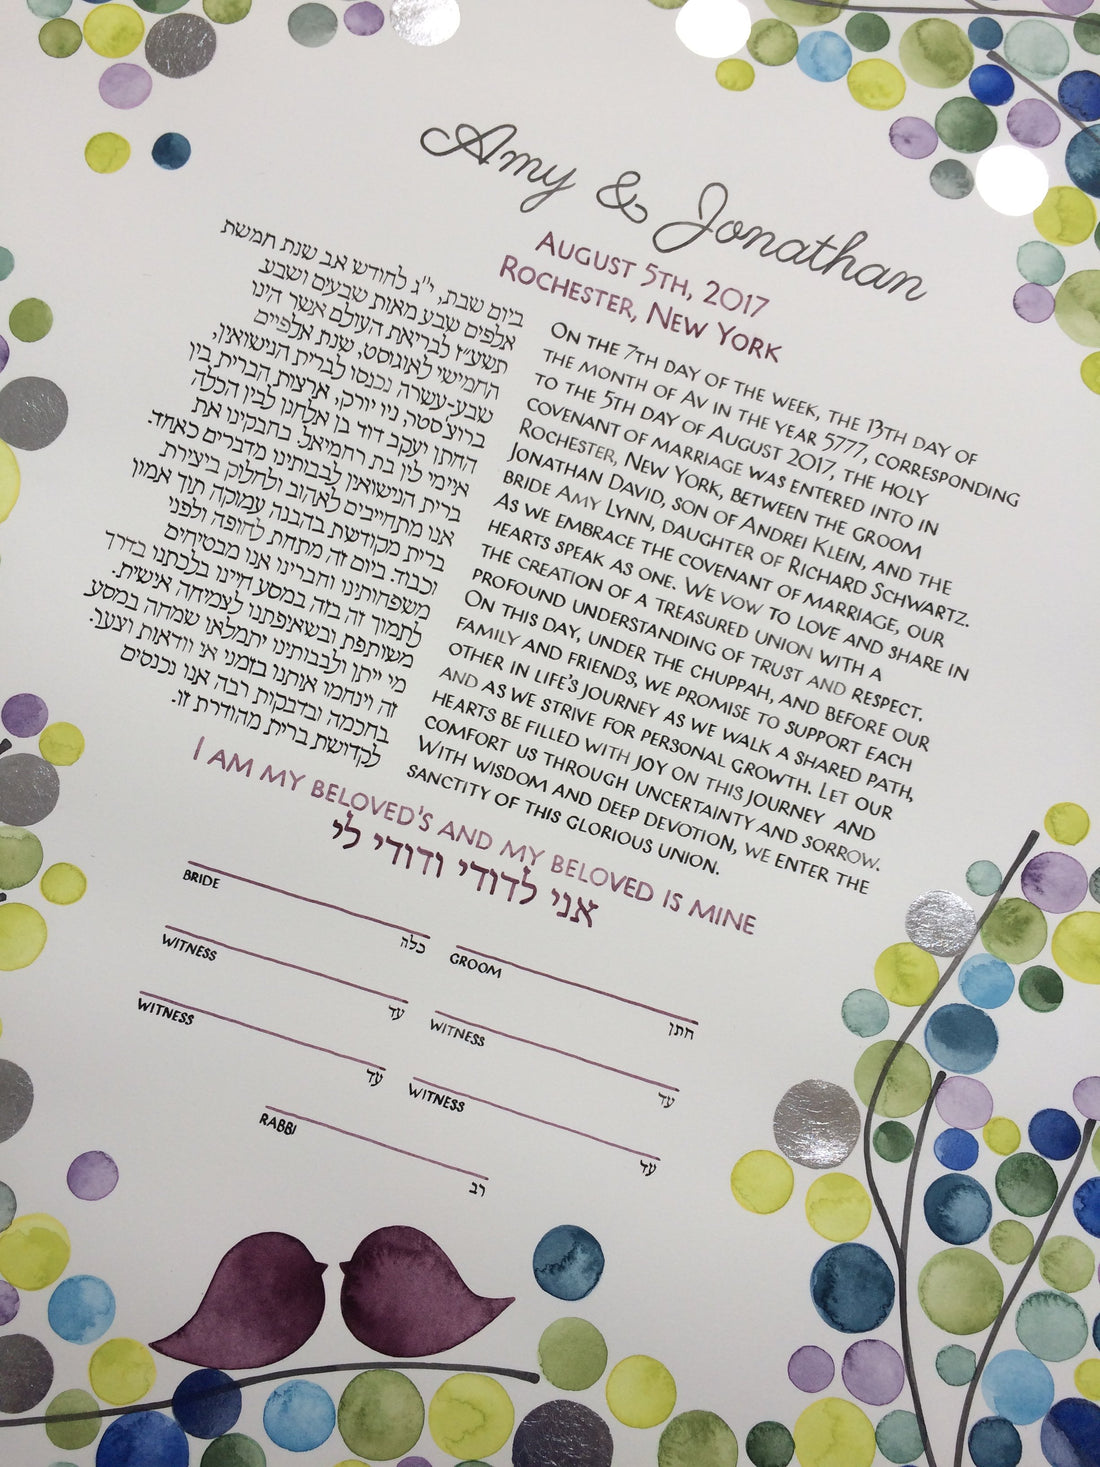 Amy & Jonathan
August 5th, 2017
Rochester, New York
ביום שבת, י"ג לחודש אב שנת חמשת
אלפים שבע מאות שבעים ושבע
תשע"ז לבריאת העולם אשר הינו
החמישי לאוגוסט, שנת אלפיים
שבע-עשרה נכנסו לברית הנישואין,
ברוצ'סטר, ניו יורק, ארצות הברית בין
החתן יעקב דוד בן אלחנן לבין הכלה
איימי לין בת רחמיאל. בחבקינו את
ברית הנישואין לבבותינו מדברים כאחד.
אנו מתחייבים לאהוב ולחלוק ביצירת
ברית מקודשת בהבנה עמוקה תוך אמון
וכבוד. ביום זה מתחת לחופה ולפני
משפחותינו וחברינו אנו מבטיחים
לתמוך זה בזה במסע חיינו בלכתנו בדרך
משותפת ובשאיפתנו לצמיחה אישית.
מי ייתן ולבבותינו יתמלאו שמחה במסע
זה וינחמו אותנו בזמני אי וודאות ויצער.
בחכמה ובדבקות רבה אנו נכנסים
לקדושת ברית מהודרת זו.
On the 7th day of the week, the 13th day of
the month of Av in the year 5777, corresponding
to the 5th day of August 2017, the holy
covenant of marriage was entered into in
Rochester, New York, between the groom
Jonathan David, son of Andrei Klein, and the
bride Amy Lynn, daughter of Richard Schwartz.
As we embrace the covenant of marriage, our
hearts speak as one. We vow to love and share in
the creation of a treasured union with a
profound understanding of trust and respect.
On this day, under the chuppah, and before our
family and friends, we promise to support each
other in life's journey as we walk a shared path,
and as we strive for personal growth. Let our
hearts be filled with joy on this journey and
comfort us through uncertainty and sorrow.
With wisdom and deep devotion, we enter the
sanctity of this glorious union.
I am my beloved's and my beloved is mine
אני לדודי ודודי לי
Bride כלה
Groom חתן
Witness עד
Witness עד
Witness עד
Witness עד
Rabbi רב